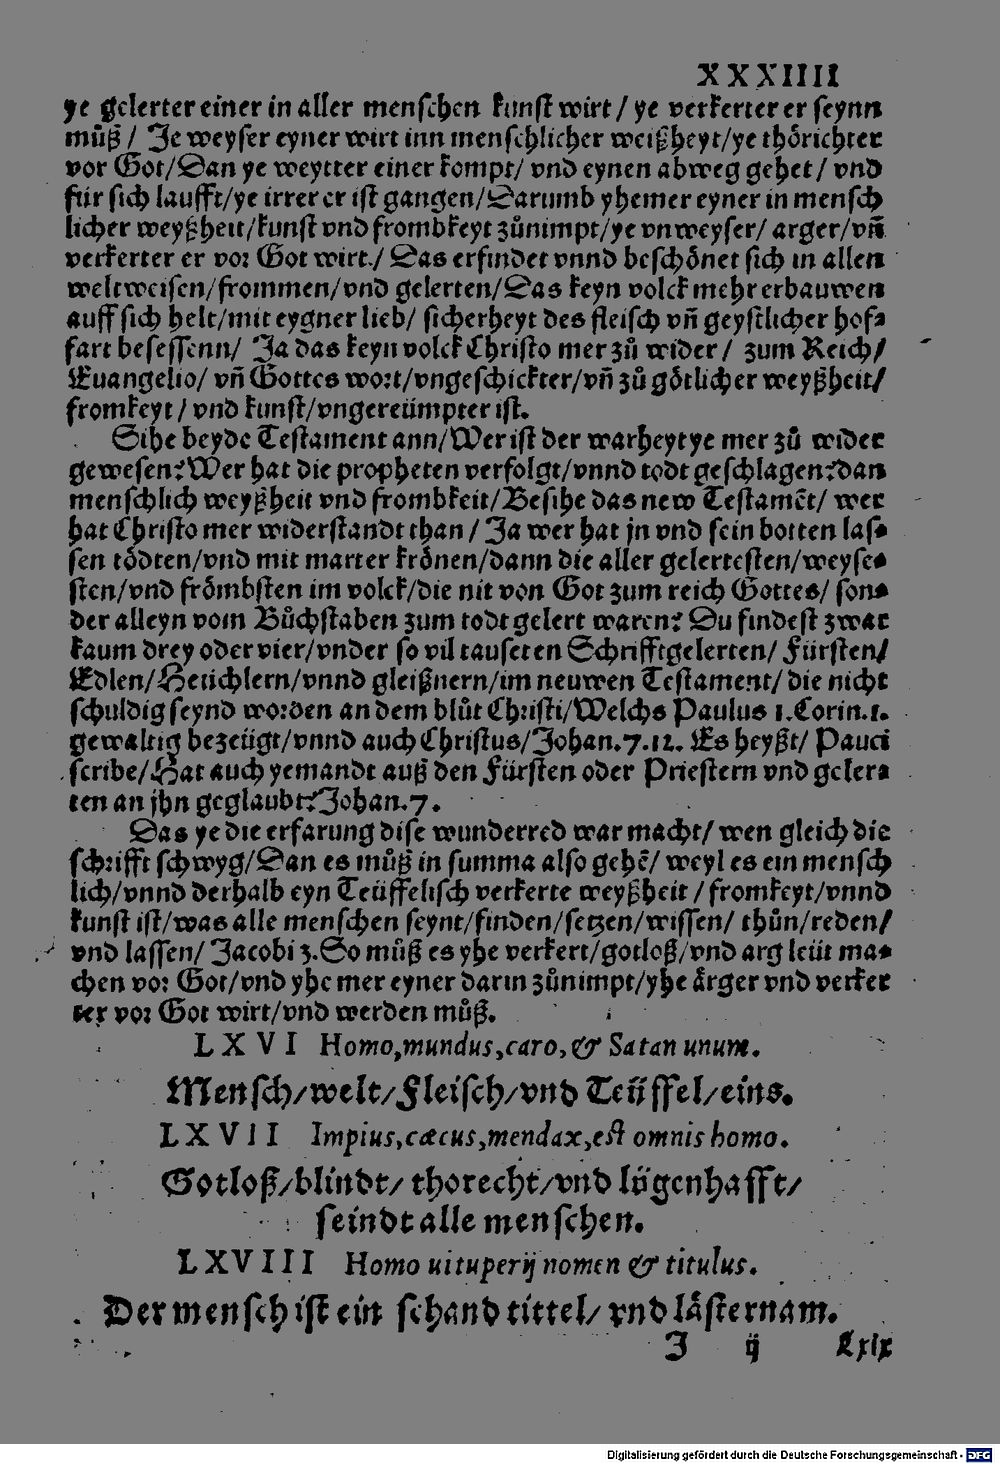 XXXIIII
ye gelerter einer in aller menschen kunst wirt / ye verkerter er seynn
můß / Je weyser eyner wirt inn menschlicher weißheyt/ye thörichter
vor Got/Dan ye weytter einer kompt/ vnd eynen abweg gehet / vnd
für sich laufft/ye irrer er ist gangen/Darumb yhemer eyner in mensch
licher weyßheit/kunst vnd frombkeyt zůnimpt/ye vnweyser/ arger/vñ
verkerter er vor Got wirt/ Das erfindet vnnd beschönet sich in allen
weltweisen/frommen/vnd gelerten/Das keyn volck mehr erbauwen
auff sich helt/mit eygner lieb/ sicherheyt des fleisch vñ geystlicher hof⸗
fart besessenn/ Ja das keyn volck Christo mer zů wider / zum Reich/
Euangelio/ vñ Gottes wort/vngeschickter/vñ zů götlicher weyßheit/
fromkeyt / vnd kunst/vngereümpter ist.
Sihe beyde Testament ann/Wer ist der warheyt ye mer zů wider
gewesen? Wer hat die propheten verfolgt/vnnd todt geschlagen? dan
menschlich weyßheit vnd frombkeit/Besihe das new Testamēt/ wer
hat Christo mer widerstandt than / Ja wer hat jn vnd sein botten las⸗
sen tödten/vnd mit marter krönen/dann die aller gelertesten/weyse⸗
sten/vnd frömbsten im volck/die nit von Got zum reich Gottes/ son⸗
der alleyn vom Bůchstaben zum todt gelert waren? Du findest zwar
kaum drey oder vier/vnder so vil tauseten Schrifftgelerten/ Fürsten/
Edlen/Heüchlern/vnnd gleißnern/im neuwen Testament/ die nicht
schuldig seynd worden an dem blůt Christi/Welchs Paulus 1.Corin.1.
gewaltig bezeügt/vnnd auch Christus/Johan.7.12. Es heyßt/ Pauci
scribe/Hat auch yemandt auß den Fürsten oder Priestern vnd geler⸗
ten an jhn geglaubt? Johan.7.
Das ye die erfarung dise wunderred war macht/ wen gleich die
schrifft schwyg/Dan es můß in summa also gehē/ weyl es ein mensch
lich/vnnd derhalb eyn Teüffelisch verkerte weyßheit / fromkeyt/vnnd
kunst ist/was alle menschen seynt/finden/setzen/wissen/ thůn/reden/
vnd lassen/ Jacobi 3.So můß es yhe verkert/gotloß/vnd arg leüt ma⸗
chen vor Got/vnd yhe mer eyner darin zůnimpt/yhe ärger vnd verker
ter vor Got wirt/vnd werden můß.
LXVI Homo,mundus,caro,& Satan unum.
Mensch/welt/Fleisch/vnd Teüffel/eins.
LXVII Impius,cæcus,mendax,est omnis homo.
Gotloß/blindt/ thorecht/vnd lügenhafft/
seindt alle menschen.
LXVIII Homo uituperij nomen & titulus.
Der mensch ist ein schand tittel/ vnd lästernam.
J ij Lxix
Digitalisierung gefördert durch die Deutsche Forschungsgemeinschaft - DFG